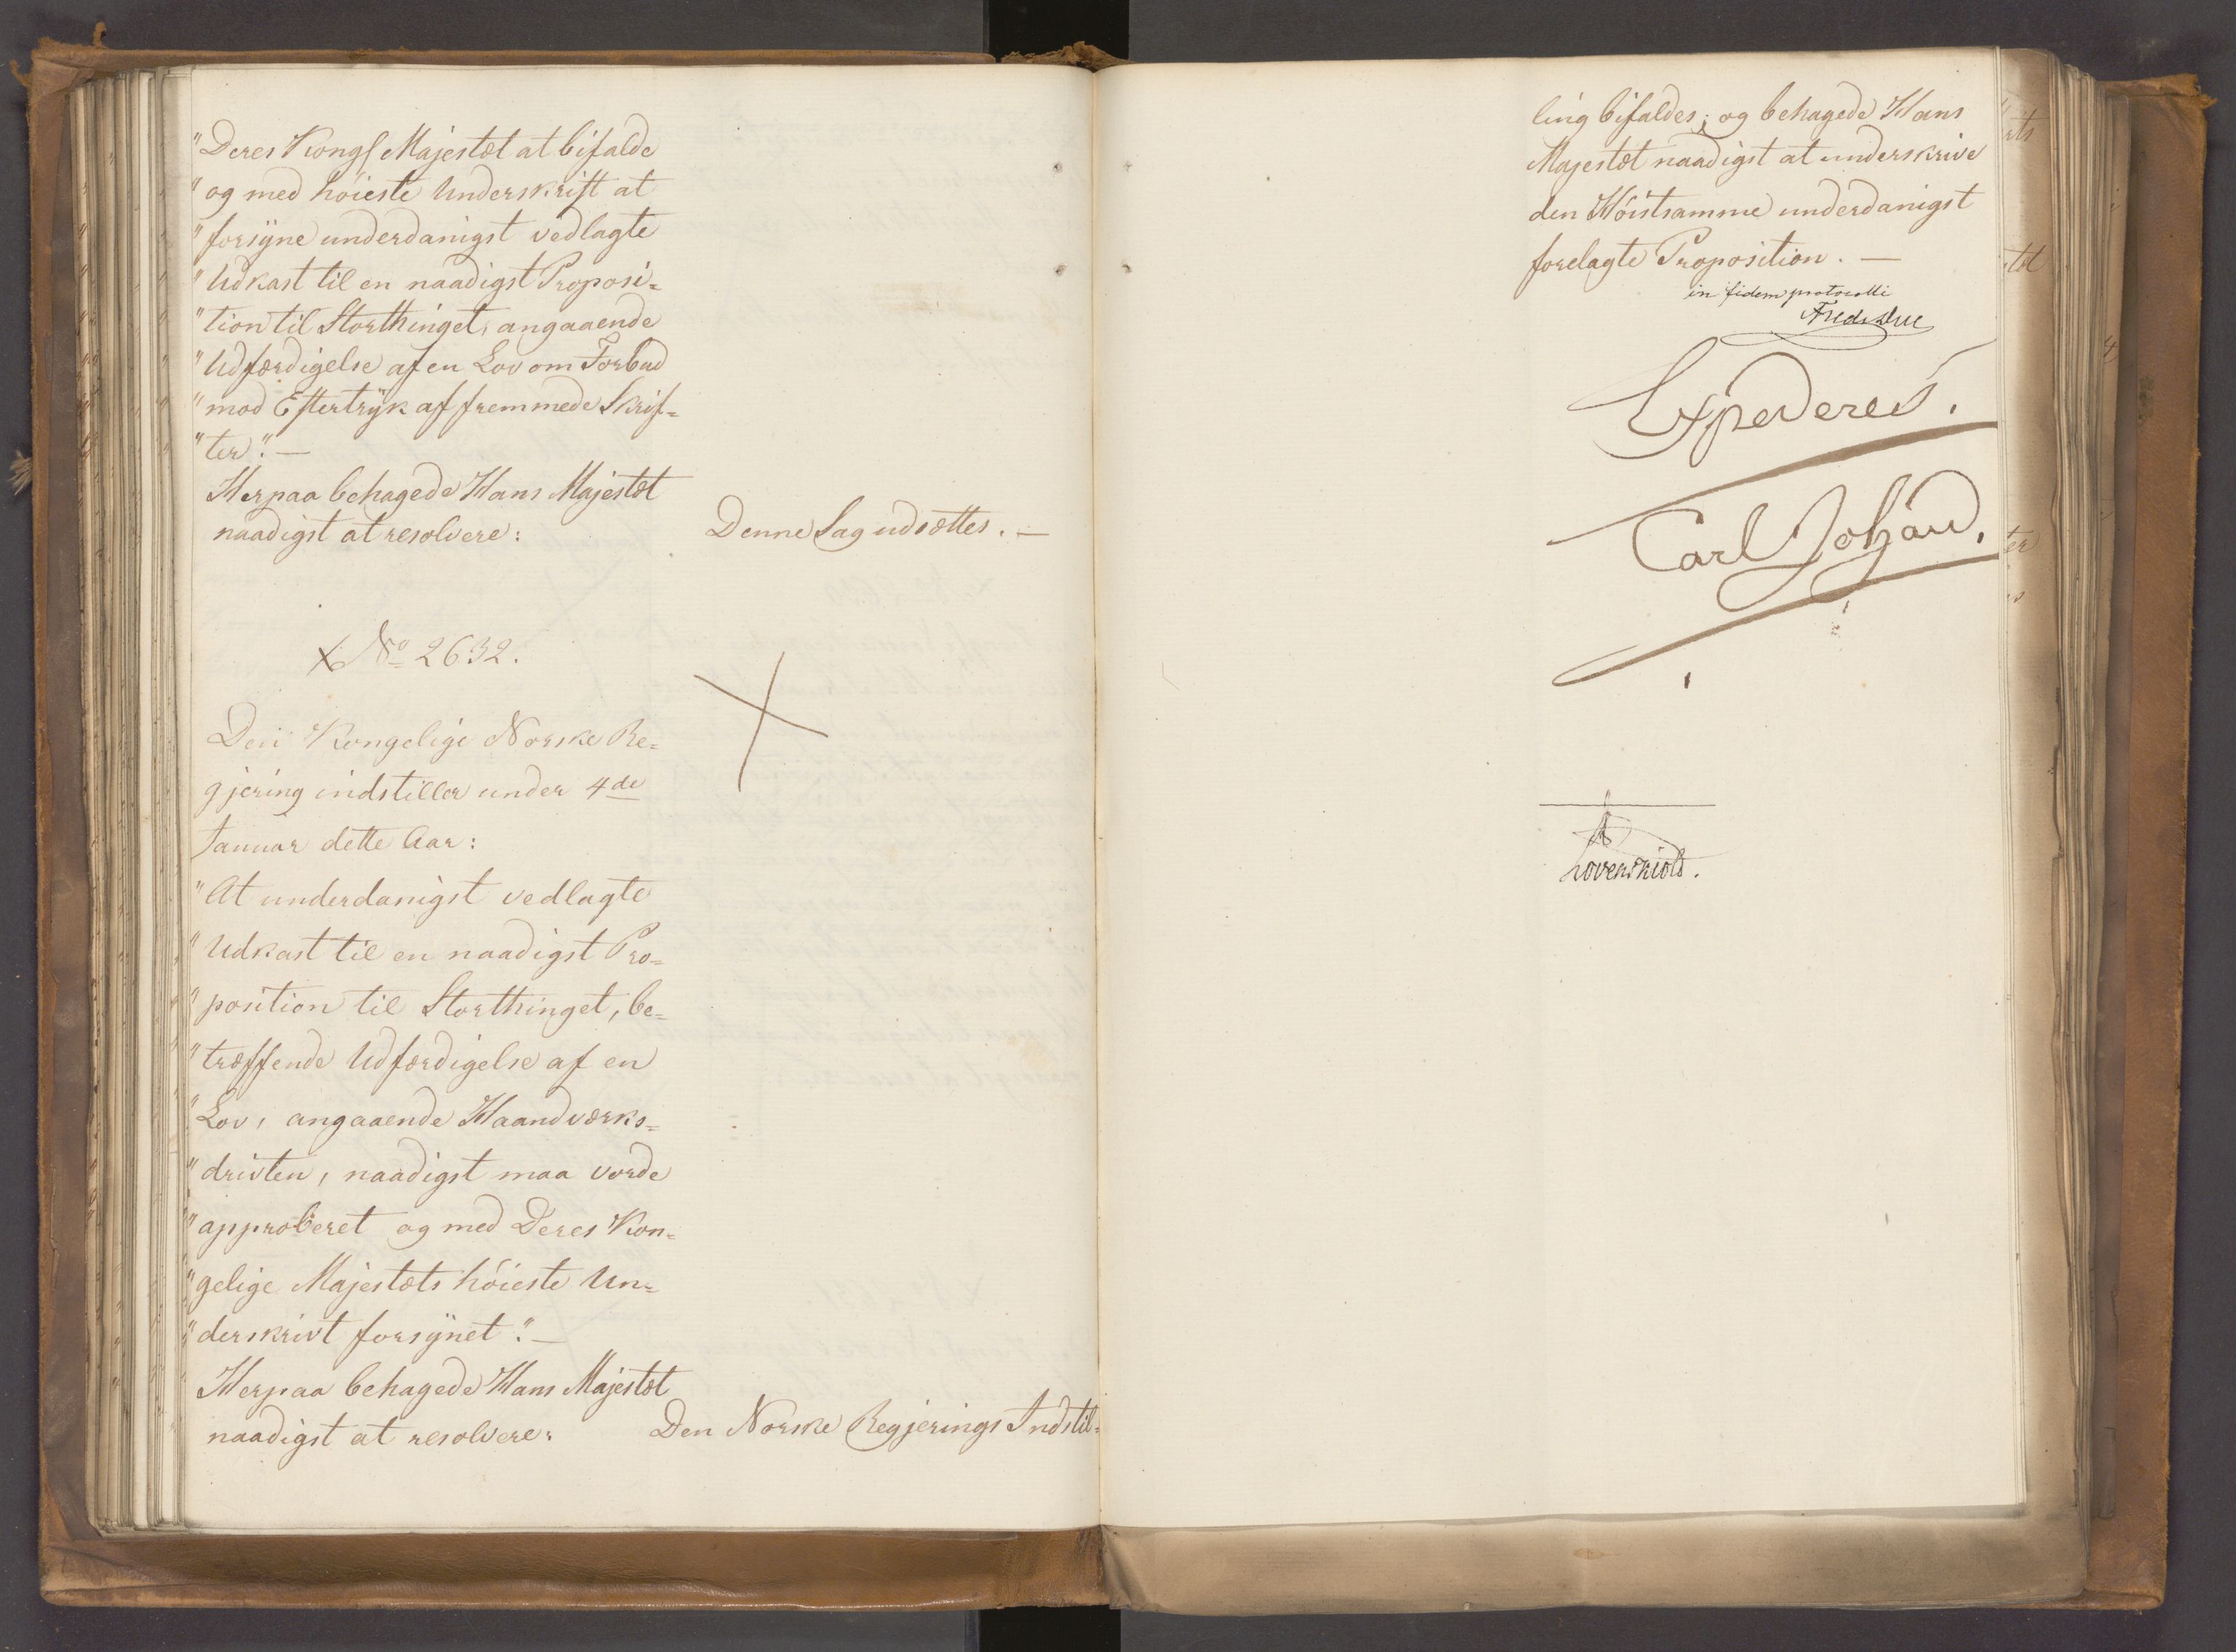 "Deres Kongl Majestæt at bifalde
"og med höieste Underskrift at
"forsyne underdanigst vedlagte
"Udkast til en naadigst Proposi=
"tion til Storthinget, angaaende
"Udfærdigelse af en Lov om Forbud
"mod Eftertryk af fremmede Skrif=
"ter". —
Herpaa behagede Hans Majestæt
naadigst at resolvere:
Denne Sag udsættes. —
No 2632.
Den Kongelige Norske Re=
gjering indstiller under 4de
Januar dette Aar:
"At underdanigst vedlagte
"Udkast til en naadigst Pro=
"position til Storthinget, be=
"træffende Udfærdigelse af en
"Lov, angaaende Haandværks=
"drivten, naadigst maa vorde
"approberet og med Deres Kon=
"gelige Majestæts höieste Un=
"derskrivt forsynet". —
Herpaa behagede Hans Majestæt
naadigst at resolvere:
Den Norske Regjerings Indstil=
ling bifaldes; og behagede Hans
Majestæt naadigst at underskrive
den Höistsamme underdanigst
forelagte Proposition. —
in fidem protocolli
Fredr Due
Expederes.
Carl Johan.
Løvenskiold.